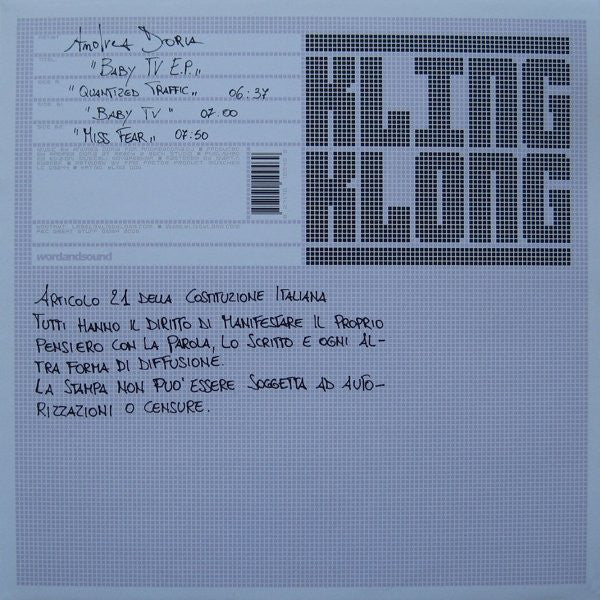 Andrea Doria
TITEL
"BABY TV E.P."
"QUANTIZED TRAFFIC" 06:37
"BABY TV" 07:00
"MISS FEAR" 07:50
KLING
KLONG
wordandsound
ARTICOLO 21 DELLA COSTITUZIONE ITALIANA
TUTTI HANNO IL DIRITTO DI MANIFESTARE IL PROPRIO
PENSIERO CON LA PAROLA, LO SCRITTO E OGNI AL-
TRA FORMA DI DIFFUSIONE.
LA STAMPA NON PUO' ESSERE SOGGETTA AD AUTO-
RIZZAZIONI O CENSURE.